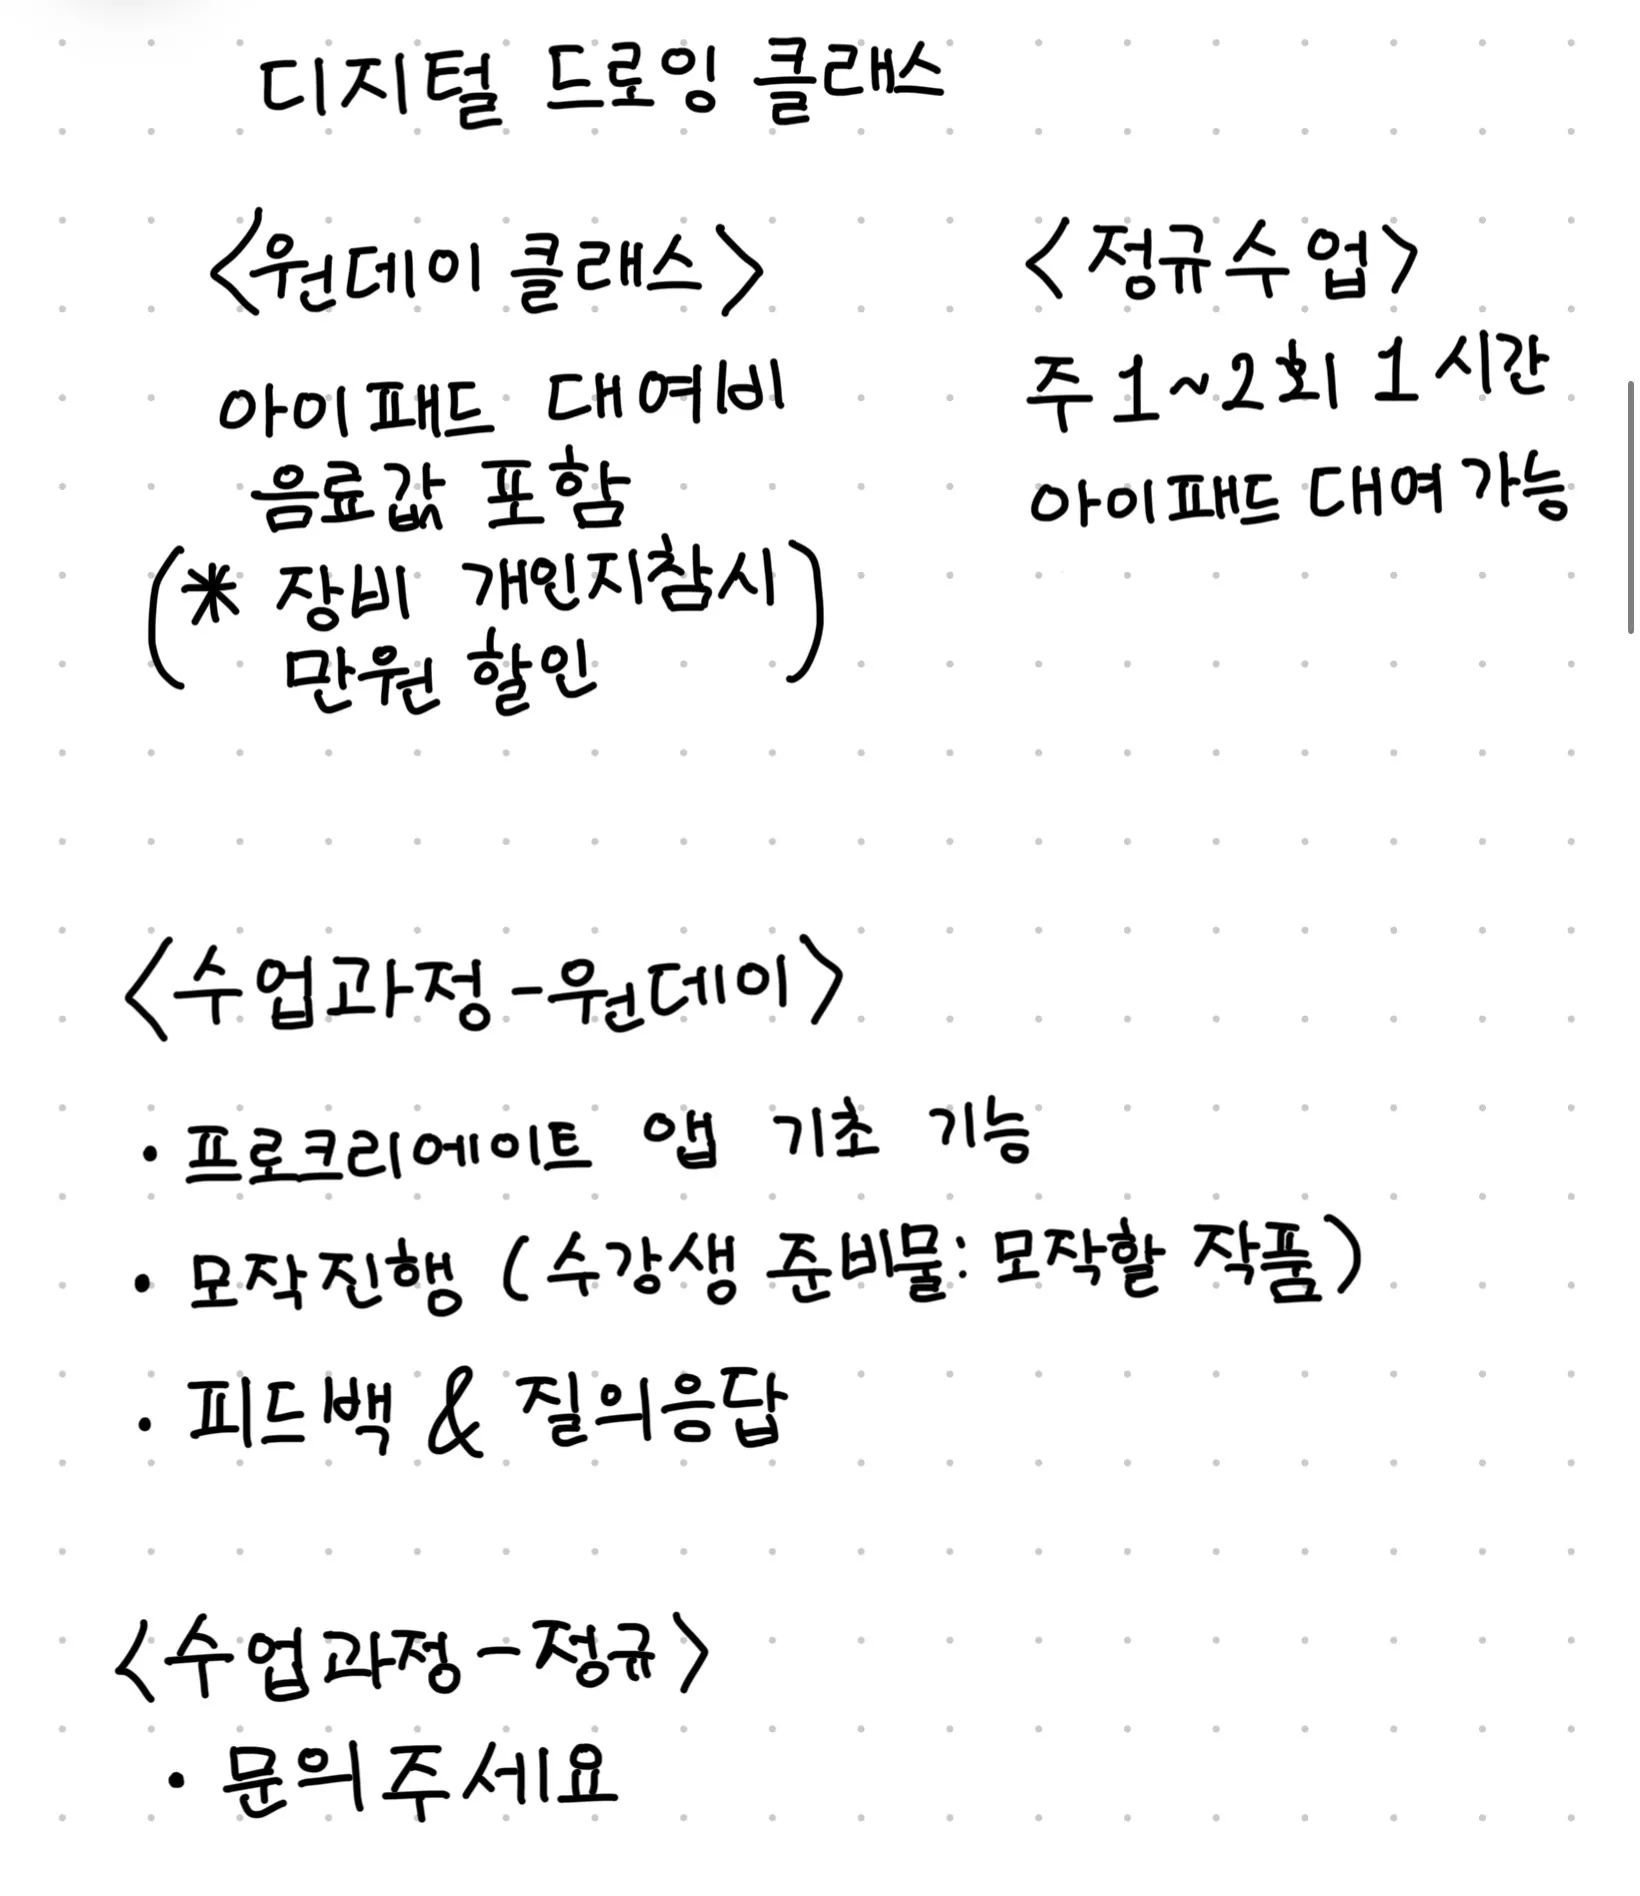 디지털 드로잉 클래스
<원데이 클래스>
아이패드 대여비
음료값 포함
(* 장비 개인지참시
만원 할인)
<정규수업>
주 1~2회 1시간
아이패드 대여 가능
<수업과정-원데이>
· 프로크리에이트 앱 기초 기능
· 모작진행 (수강생 준비물: 모작할 작품)
· 피드백 & 질의응답
<수업과정-정규>
· 문의주세요